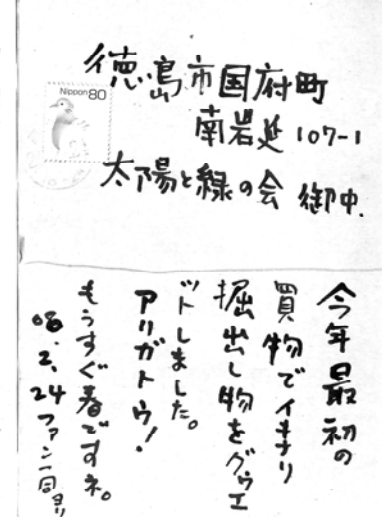 Nippon 80
徳島市国府町
南岩延107-1
太陽と緑の会 御中.
今年最初の
買物でイキナリ
掘出し物をグウエ
ットしました。
アリガトウ!
もうすぐ春ですネ。
08.2.24 ファン一同ヨリ